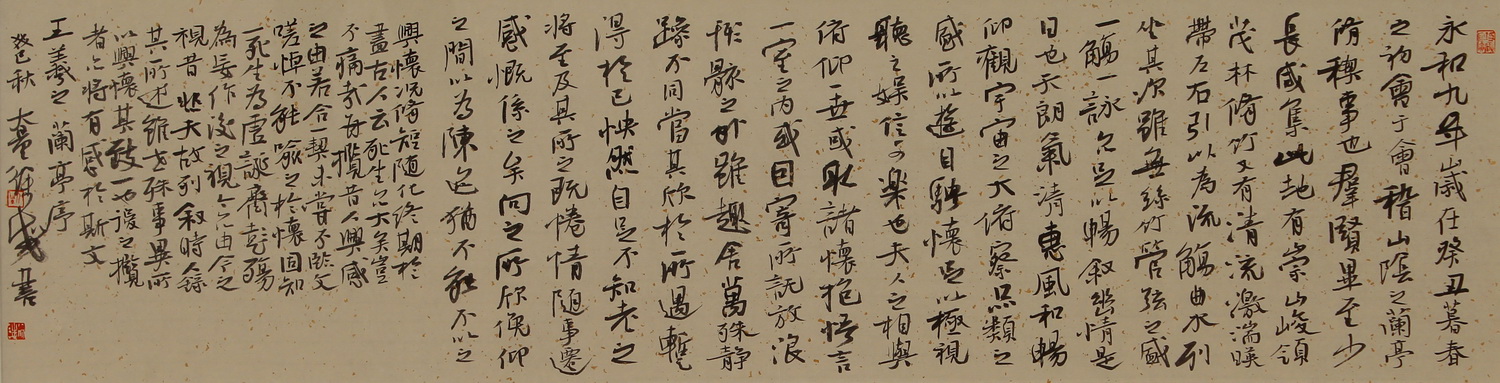 永和九年歲在癸丑暮春
之初會于會稽山陰之蘭亭
脩稧事也羣賢畢至少
長咸集此地有崇山峻領
茂林脩竹又有清流激湍暎
帶左右引以為流觴曲水列
坐其次雖無絲竹管弦之盛
一觴一詠亦足以暢叙幽情是
日也天朗氣清惠風和暢
仰觀宇宙之大俯察品類之
盛所以遊目騁懷足以極視
聽之娛信可樂也夫人之相與
俯仰一世或取諸懷抱悟言
一室之内或因寄所託放浪
形骸之外雖趣舍萬殊静
躁不同當其欣於所遇暫
得於己怏然自足不知老之
將至及其所之既惓情隨事遷
感慨係之矣向之所欣俛仰
之間以為陳迹猶不能不以之
興懷況脩短隨化終期於
盡古人云死生亦大矣豈
不痛哉每攬昔人興感
之由若合一契未嘗不臨文
嗟悼不能喻之於懷固知
一死生為虛誕齊彭殤
為妄作後之視今亦由今之
視昔悲夫故列叙時人錄
其所述雖世殊事異所
以興懷其致一也後之攬
者亦將有感於斯文
王羲之蘭亭序
癸巳秋 書